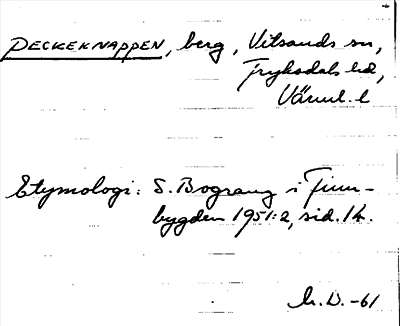 DECKEKNAPPEN, berg, Vitsands sn,
Fryksdals hd,
Värml. l
Etymologi: S. Bograng i Finn-
bygden 1951:2, sid. 14.
-61